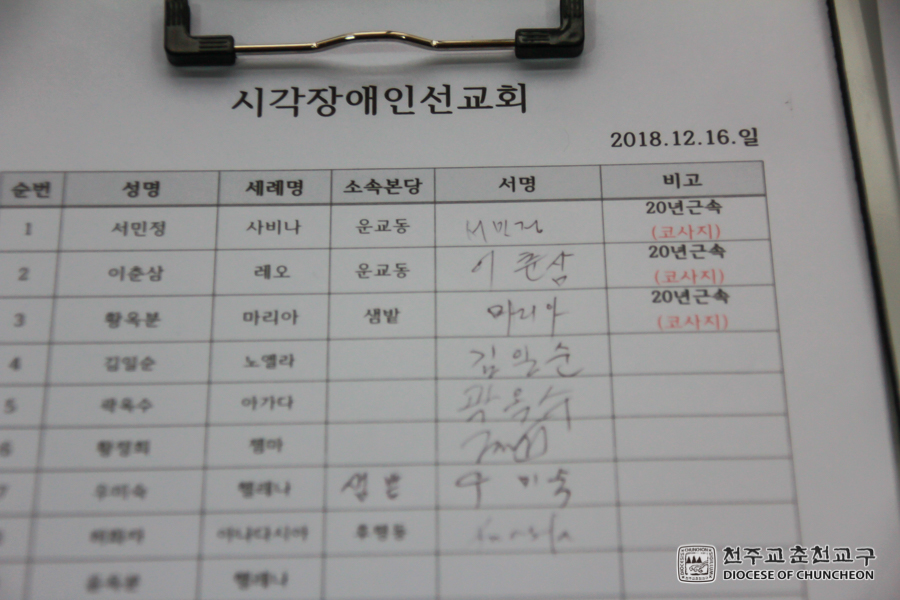 시각장애인선교회
2018.12.16.일
순번 성명 세례명 소속본당 서명 비고
1 서민정 사비나 운교동 서민정 20년근속
(코사지)
2 이춘삼 레오 운교동 이춘삼 20년근속
(코사지)
3 황옥분 마리아 샘밭 마리아 20년근속
(코사지)
4 김일순 노엘라 김일순
5 곽옥수 아가다 곽옥수
6 황정희 젬마
7 우미숙 헬레나 샘밭 우미숙
아나다시아 후평동
헬레나
천주교춘천교구
DIOCESE OF CHUNCHEON